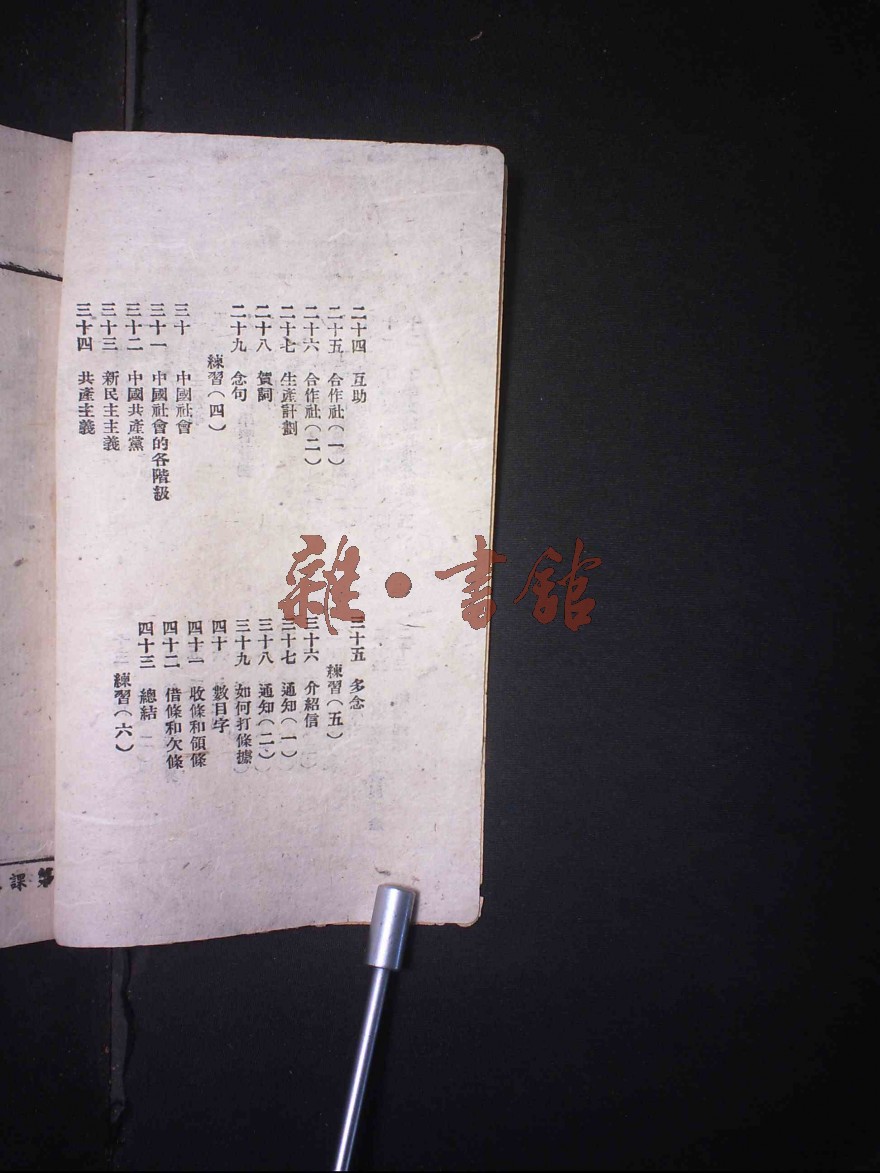 二十四　互助
二十五　合作社(一)
二十六　合作社(二)
二十七　生產計劃
二十八　賀詞
二十九　念句
練習(四)
三十　中國社會
三十一　中國社會的各階級
三十二　中國共產黨
三十三　新民主主義
三十四　共產主義
三十五　多念
練習(五)
三十六　介紹信
三十七　通知(一)
三十八　通知(二)
三十九　如何打條據
四十　數目字
四十一　收條和領條
四十二　借條和欠條
四十三　總結
練習(六)
雜·書館
第課